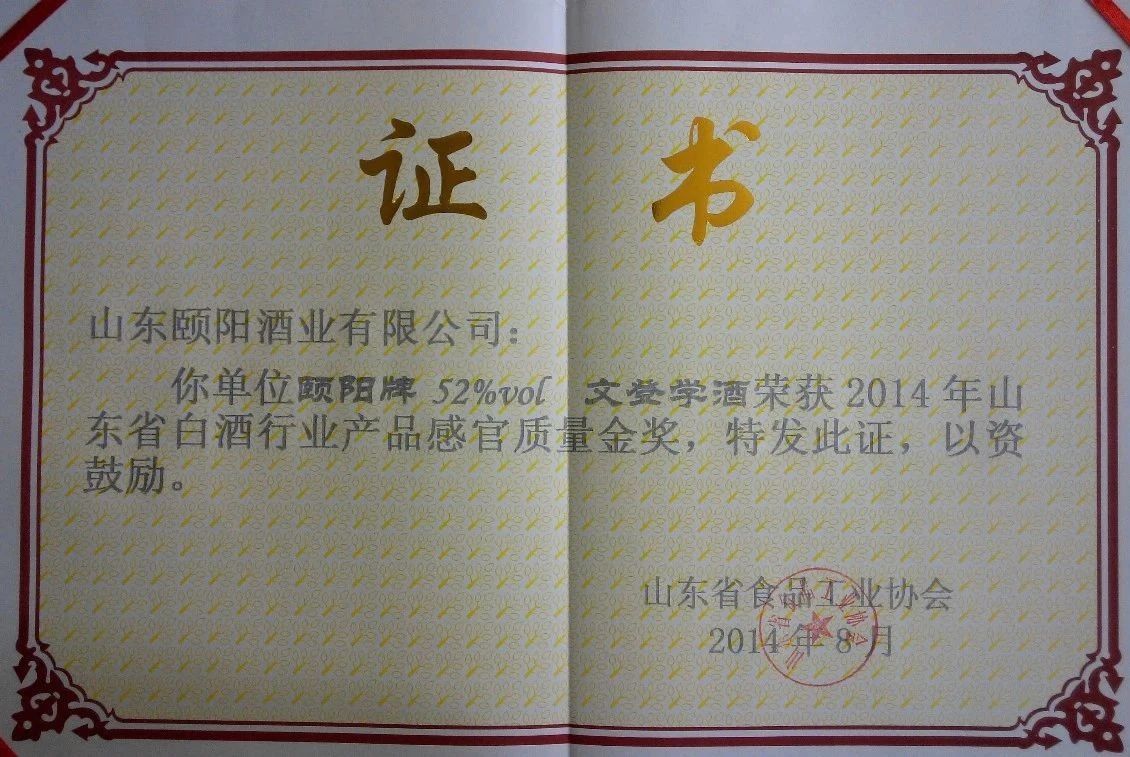 证书
山东颐阳酒业有限公司：
你单位颐阳牌 52%vol 文登学酒荣获 2014 年山
东省白酒行业产品感官质量金奖，特发此证，以资
鼓励。
山东省食品工业协会
2014 年 8 月